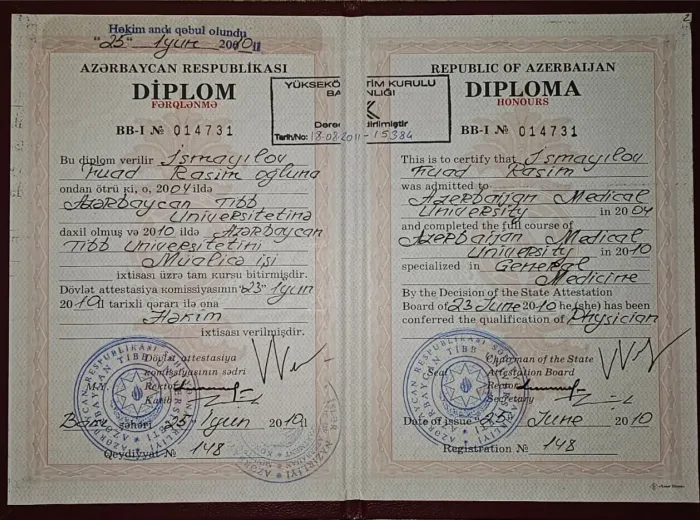 Həkim andı qəbul olundu
"25" İyun 2010 il
AZƏRBAYCAN RESPUBLİKASI
DİPLOM
FƏRQLƏNMƏ
BB-I № 014731
Bu diplom verilir İsmayılov
Fuad Rasim oğluna
ondan ötrü ki, o, 2004 ildə
Azərbaycan Tibb
Universitetinə
daxil olmuş və 2010 ildə Azərbaycan
Tibb Universitetini
Müalicə işi
ixtisası üzrə tam kursu bitirmişdir.
Dövlət attestasiya komissiyasının "23" İyun
2010 il tarixli qərarı ilə ona
Həkim
ixtisası verilmişdir.
Dövlət attestasiya
komissiyasının sədri
M.Y. Rektor
Katib
Bakı şəhəri 25 İyun 2010 il
Qeydiyyat № 148
YÜKSEKÖ TİM KURULU
BA NLIĞI
K
Derec dirilmiştir
Tarih/No: 18.08.2011-15384
REPUBLIC OF AZERBAIJAN
DIPLOMA
HONOURS
BB-I № 014731
This is to certify that İsmayılov
Fuad Rasim
was admitted to
Azerbaijan Medical
University in 2004
and completed the full course of
Azerbaijan Medical
University in 2010
specialized in General
Medicine
By the Decision of the State Attestation
Board of 23 June 2010 he (she) has been
conferred the qualification of Physician
Chairman of the State
Seal Attestation Board
Rector
Secretary
Date of issue 25 June 2010
Registration № 148